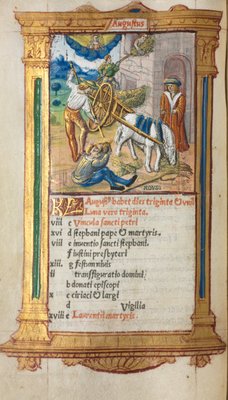 Augustus
KL Augustꝰ habet dies triginta & vnū
Luna vero triginta.
viii c Vincula sancti petri
xvi d stephani pape & martyris.
e inuentio sancti stephani.
f iustini presbyteri
xiii. g festum niuis
ii transfiguratio domini:
b donati episcopi
x c ciriaci & largi
d Vigilia
xviii e Laurentii martyris.